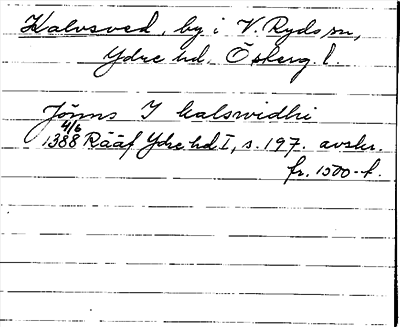 Kalvsved, by i V. Ryds sn,
Ydre hd. Österg. l.
Jönns J kalswidhi
4/6
1388 Rääf Ydre hd I, s. 197. avskr.
fr. 1500-t.